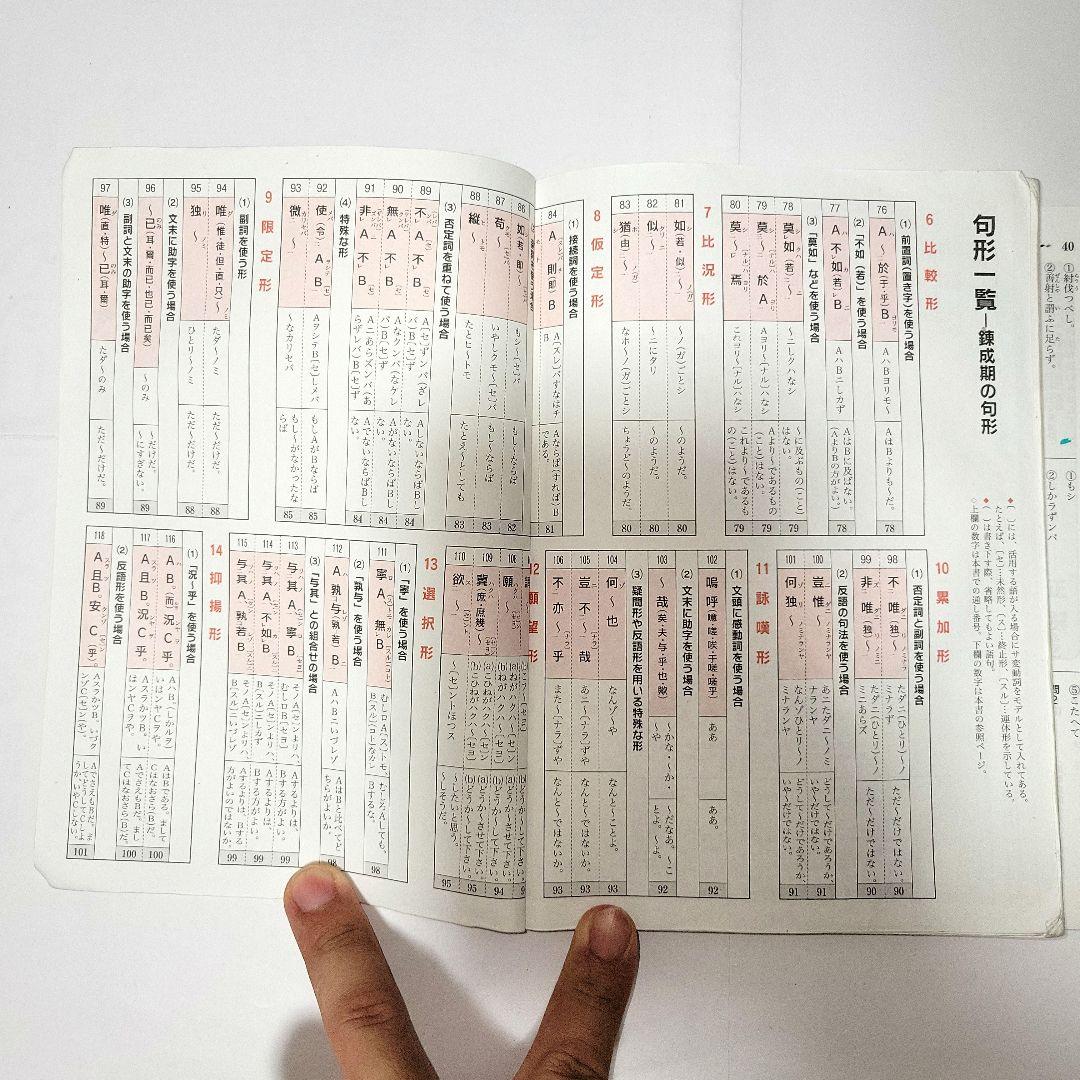 句形一覧―錬成期の句形
◆〔 〕には、活用する語が入る場合にサ変動詞をモデルとして入れてある。
たとえば、〔セ〕…未然形、〔ス〕…終止形、〔スル〕…連体形を示している。
◆（ ）は書き下す際、省略してもよい語句。
◇上欄の数字は本書での通し番号、下欄の数字は本書の参照ページ。
6 比較形
(1) 前置詞(置き字)を使う場合
76 A〜於(于・乎)B AハBヨリモ〜 AはBよりも〜だ。 78
(2)「不如(若)」を使う場合
77 A不如(若)B AハBニしかず AはBに及ばない。(AよりBの方がよい。) 78
(3)「莫如」などを使う場合
78 莫如(若)〜 〜ニしクハなシ 〜に及ぶもの(こと)はない。 79
79 莫〜於A Aヨリ〜(ナル)ハなシ Aより〜であるもの(こと)はない。 79
80 莫〜焉 これヨリ〜(ナル)ハなシ これより〜であるもの(こと)はない。 79
7 比況形
81 如(若・似)〜 〜ノ(ガ)ごとシ 〜のようだ。 80
82 似〜 〜ニにタリ 〜のようだ。 80
83 猶(由)〜 なホ〜ノ(ガ)ごとシ ちょうど〜のようだ。 80
8 仮定形
(1) 接続詞を使う場合
84 A則(即)B A〔スレ〕バすなはチB Aならば(すれば)Bである。 81
86 如(若・即)〜 もシ〜〔セ〕バ もし〜ならば 82
87 苟〜 いやしクモ〜〔セ〕バ もし〜ならば 83
88 縦〜 たとヒ〜トモ たとえ〜としても 83
(3) 否定詞を重ねて使う場合
89 不A不B A〔セ〕ずンバ(ざレバ)B〔セ〕ず AしないならばBしない。 84
90 無A不B Aなクンバ(なケレバ)B〔セ〕ず AがないならばBしない。 84
91 非A不B Aニあらズンバ(あらザレバ)B〔セ〕ず AでないならばBしない。 84
(4) 特殊な形
92 使(令)AB AヲシテB〔セ〕しメバ もしAがBならば 85
93 微〜 〜なカリセバ もし〜がなかったならば 85
9 限定形
(1) 副詞を使う形
94 唯(惟・徒・但・直・只)〜 たダ〜ノミ ただ〜だけだ。 88
95 独〜 ひとリ〜ノミ ただ〜だけだ。 88
(2) 文末に助字を使う場合
96 〜已(耳・爾・而已・也已・而已矣) 〜のみ 〜だけだ。〜にすぎない。 89
(3) 副詞と文末の助字を使う場合
97 唯(直・特)〜已(耳・爾) たダ〜のみ ただ〜だけだ。 89
10 累加形
(1) 否定詞と副詞を使う場合
98 不唯(独)〜 たダニ(ひとリ)〜ノミナラず ただ〜だけではない。 90
99 非唯(独)〜 たダニ(ひとリ)〜ノミニあらズ ただ〜だけではない。 90
(2) 反語の句法を使う場合
100 豈惟〜 あニたダニ〜ノミナランヤ どうして〜だけであろうか、いや〜だけではない。 91
101 何独〜 なんゾひとリ〜ノミナランヤ どうして〜だけであろうか、いや〜だけではない。 91
11 詠嘆形
(1) 文頭に感動詞を使う場合
102 嗚呼 ああ ああ。 92
(2) 文末に助字を使う場合
103 〜哉(矣・夫・与・乎・也歟) 〜かな・〜か・〜や 〜だなあ。〜ことよ。〜よ。 92
(3) 疑問形や反語形を用いる特殊な形
104 何〜也 なんゾ〜や なんと〜ことよ。 93
105 豈不〜哉 あニ〜(ナラ)ずや なんと〜ではないか。 93
106 不亦〜乎 また〜(ナラ)ずや なんと〜ではないか。 93
12 願望形
108 願 94
109 冀(庶・庶幾)〜 95
110 欲〜 〜〔セ〕ントほっス 〜したいと思う。〜しそうだ。 95
13 選択形
(1)「寧」を使う場合
111 寧A無B むしロA〔ス〕トモ、B〔スル〕コトなカレ むしろAしても、Bするな。 98
(2)「孰与」を使う場合
112 A孰与(孰若)B AハBニいづレゾ AはBと比べてどちらがよいか。 98
(3)「与其」との組合せの場合
113 与其A寧B そノA〔セ〕ンよりハ、むしロB〔セヨ〕 Aするよりは、Bする方がよい。 99
114 与其A不如B そノA〔セ〕ンよりハ、B〔スル〕ニしカず Aするよりは、Bする方がよい。 99
115 与其A孰若B そノA〔セ〕ンよりハ、B〔スル〕ニいづレゾ Aするよりは、Bする方がよいのではないか。 99
14 抑揚形
(1)「況〜乎」を使う場合
116 AB。(而)況C乎。 AハB。(しかルヲ)いはンヤCヲや。 AはBである。ましてCはなおさら〔B〕だ。 100
117 A且B。況C乎。 AスラかツB。いはンヤCヲや。 AでさえもBだ。ましてCはなおさら〔B〕だ。 100
(2) 反語形を使う場合
118 A且B。安C(乎)。 AスラかツB、いづクンゾC〔セ〕ン(や)。 AでさえもBだ。まして、どうしてCしようか、いやCしない。 101
40
①紂伐つべし。
②善射と謂ふに足らず。
①もシ
②しカラずンバ
問2